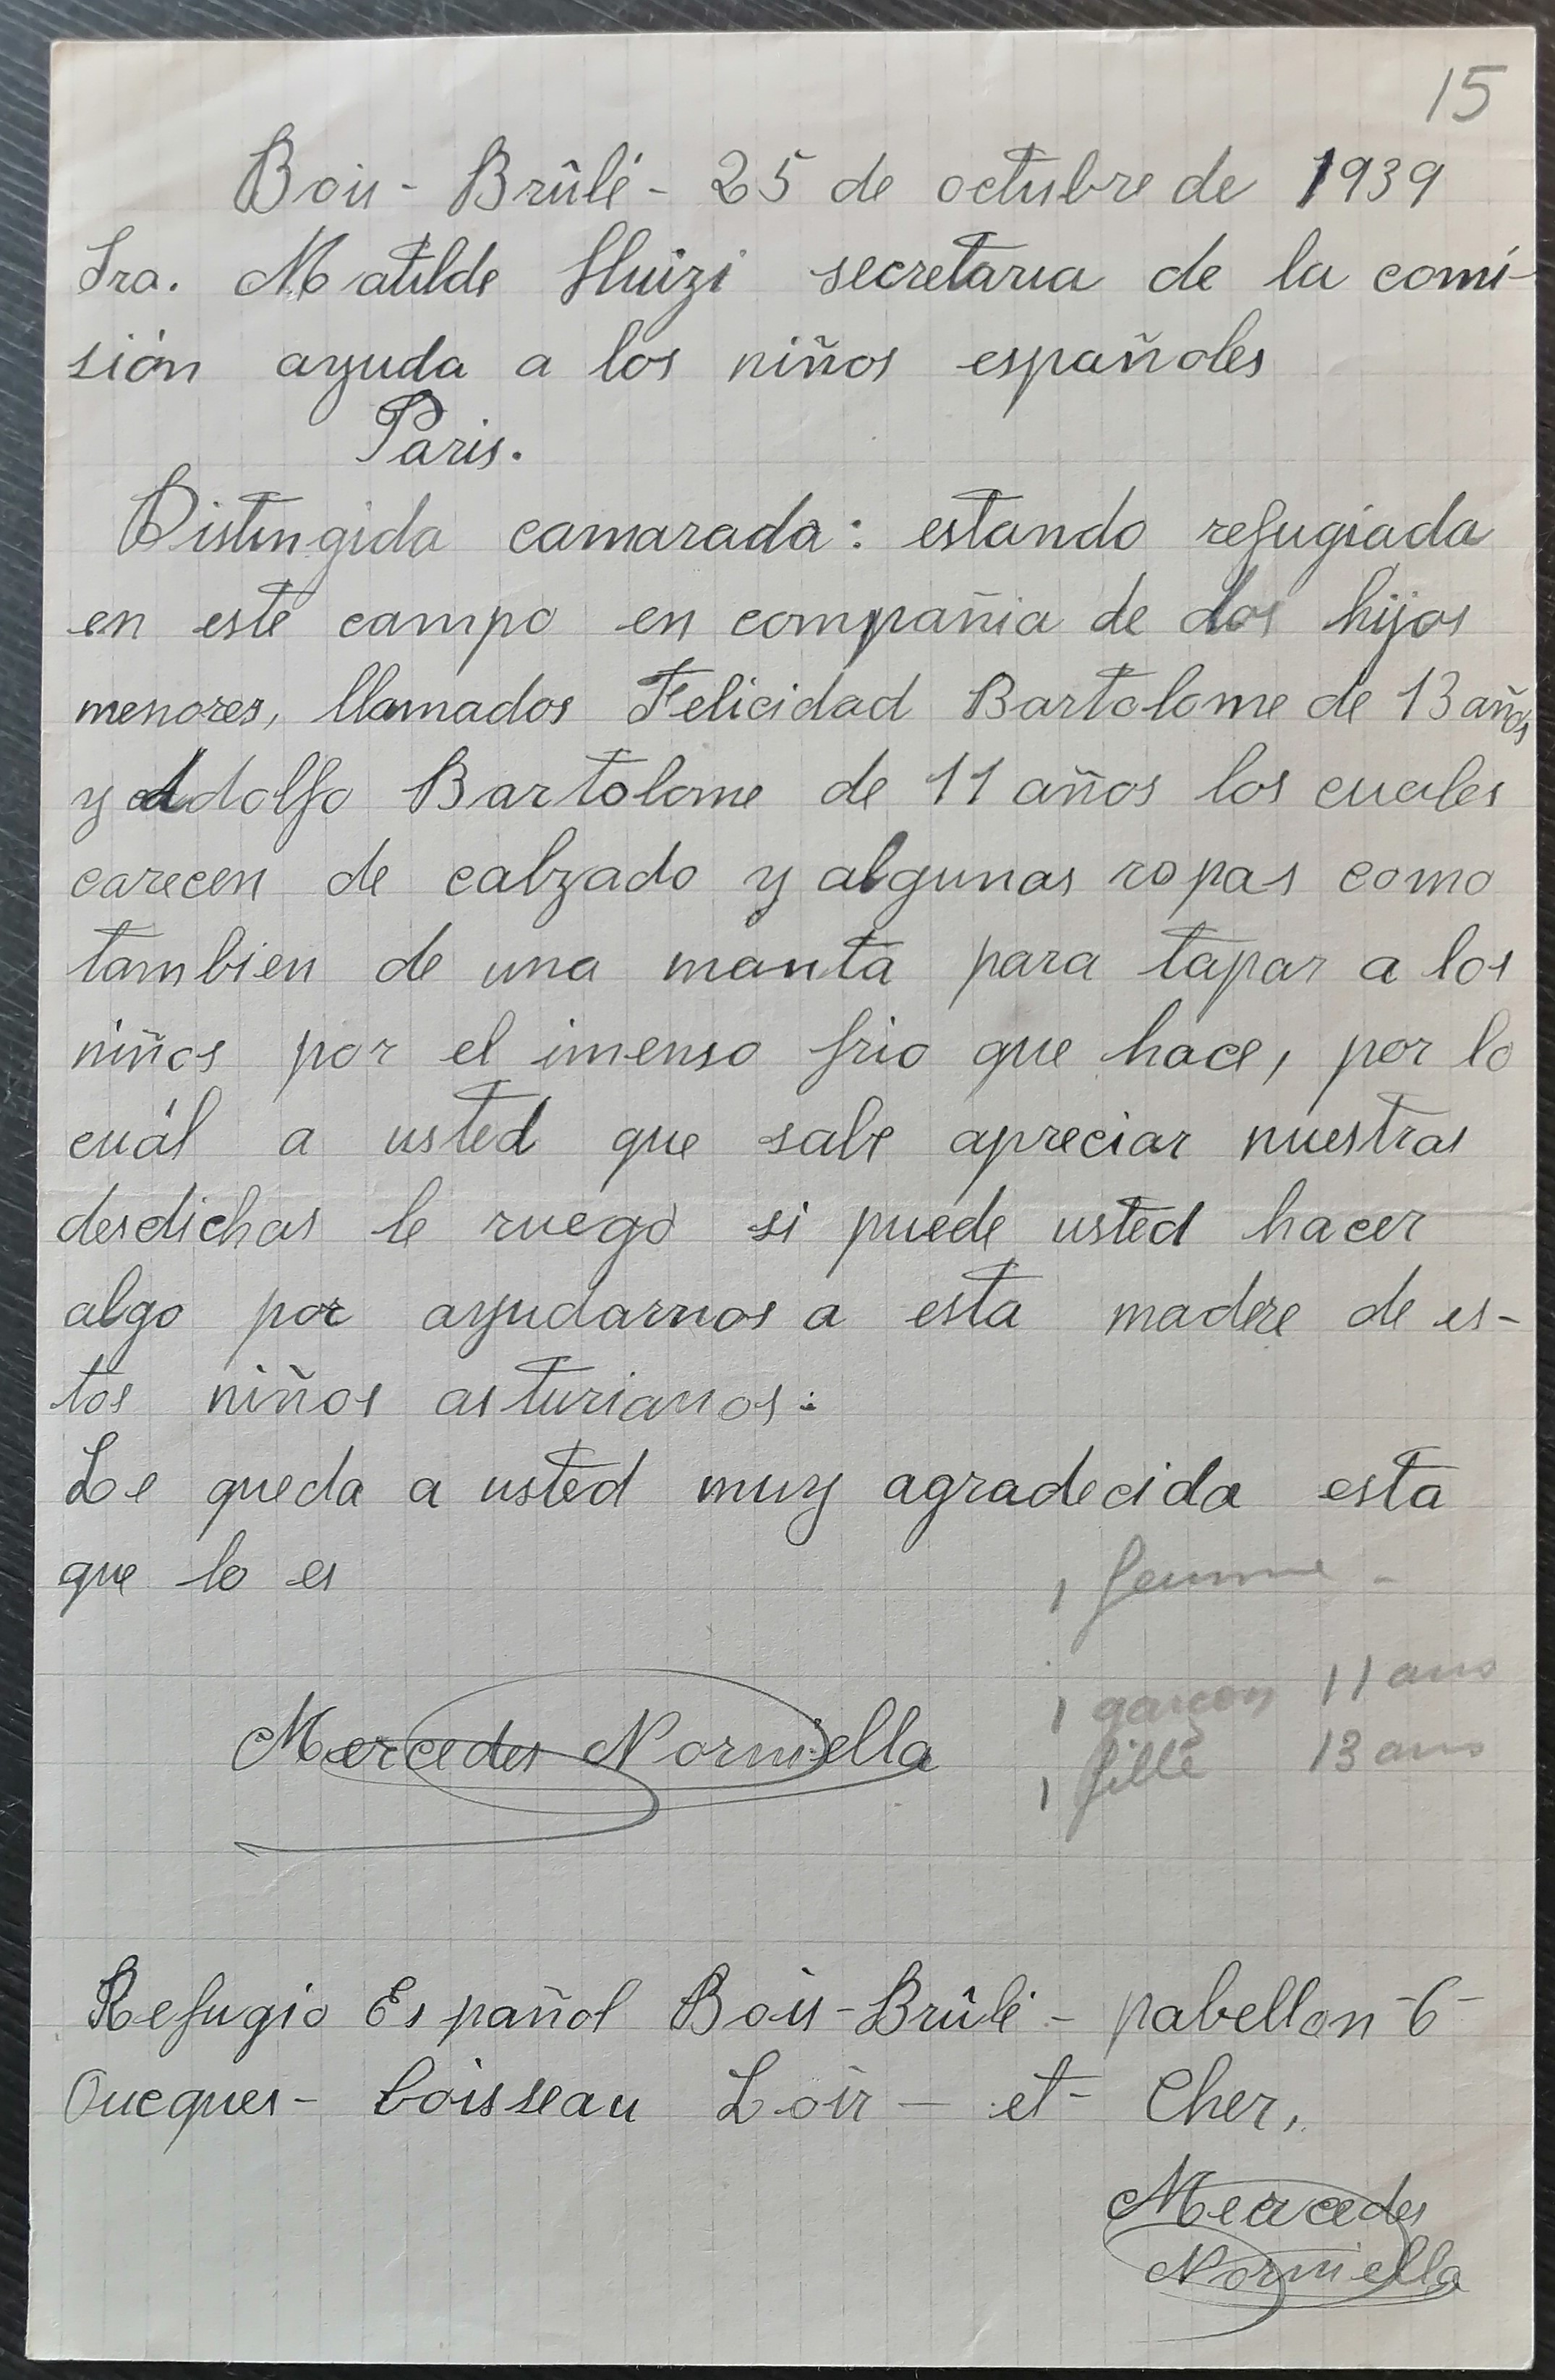 15
Bois - Brûlé - 25 de octubre de 1939
Sra. Matilde Huizi secretaria de la comi-
sión ayuda a los niños españoles
Paris.
Distingida camarada: estando refugiada
en este campo en compañia de dos hijos
menores, llamados Felicidad Bartolome de 13 años
y Adolfo Bartolome de 11 años los cuales
carecen de calzado y algunas ropas como
tambien de una manta para tapar a los
niños por el imenso frio que hace, por lo
cuál a usted que sabe apreciar nuestras
desdichas le ruego si puede usted hacer
algo por ayudarnos a esta madre de es-
tos niños asturianos:
Le queda a usted muy agradecida esta
que lo es
1 femme -
1 garçon 11 ans
Mercedes Norniella
1 fille 13 ans
Refugio Español Bois-Brûlé - pabellon -6-
Oucques - boisseau Loir - et - Cher,
Mercedes
Norniella